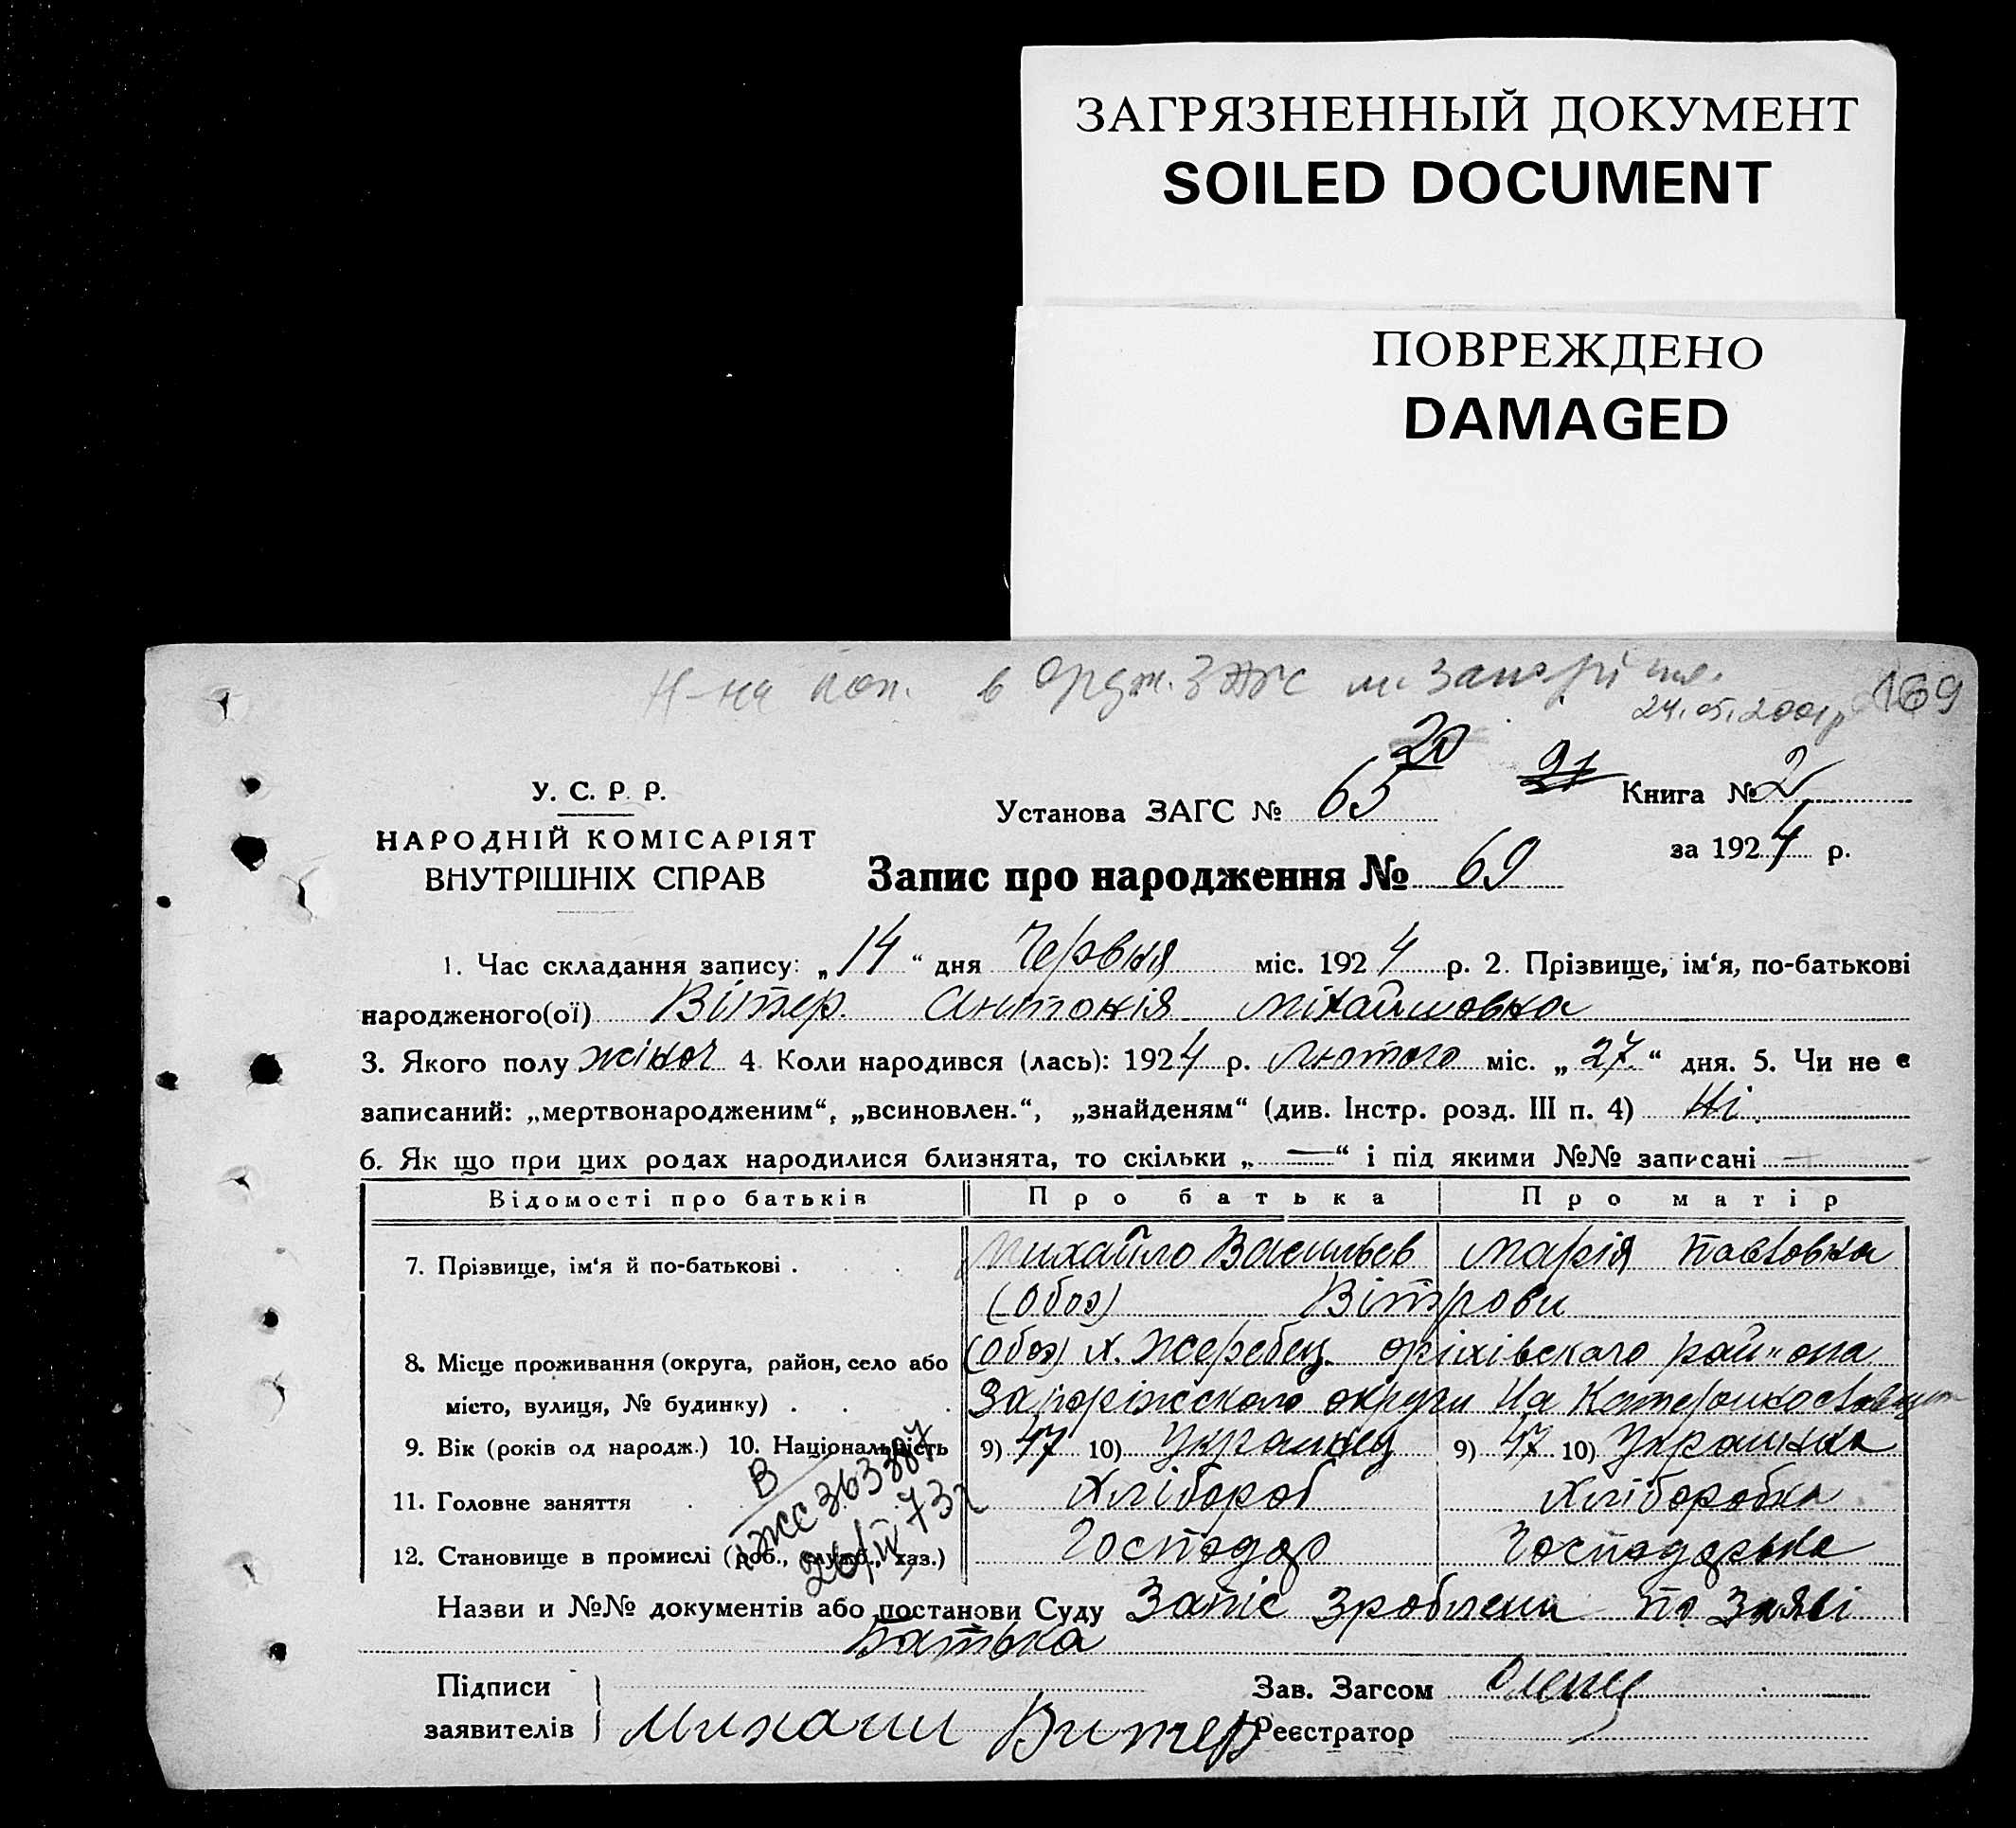 ЗАГРЯЗНЕННЫЙ ДОКУМЕНТ
SOILED DOCUMENT
ПОВРЕЖДЕНО
DAMAGED
в Ордж. ЗАГС м. Запоріжжя.
24.05.2001р 169
20 21
У. С. Р. Р.
Установа ЗАГС № 65 Книга № 2
НАРОДНІЙ КОМІСАРІЯТ
за 1924 р.
ВНУТРІШНІХ СПРАВ
Запис про народження № 69
1. Час складання запису: „14“ дня Червня міс. 1924 р. 2. Прізвище, ім‘я, по-батькові
народженого(ої) Вітер Антонія Міхайловна
3. Якого полу жіноч 4. Коли народився (лась): 1924 р. Лютого міс. „27“ дня. 5. Чи не є
записаний: „мертвонародженим“, „всиновлен.“, „знайденям“ (див. Інстр. розд. III п. 4) Ні.
6. Як що при цих родах народилися близнята, то скільки „—“ і під якими №№ записані —
Відомості про батьків Про батька Про матір
7. Прізвище, ім‘я й по-батькові . . . Михайло Васильев Марія Павловна
(Обоє) Вітрови
8. Місце проживання (округа, район, село або (Обоє) х. Жеребец оріхівского район она
місто, вулиця, № будинку) . . . Запоріжского округи На Катеринославщит
9. Вік (років од народж.) 10. Національність 9) 47 10) Украинец 9) 47 10) Украинка
11. Головне заняття . . Хлібороб Хліборобка
12. Становище в промислі (роб., служб., хаз.) Господар Господарька
В
ІЖС 363387
26/IV 73г
Назви и №№ документів або постанови Суду Запіс зроблени по Заяві
Батька
Підписи Зав. Загсом
заявителів Михаил Витер Реєстратор